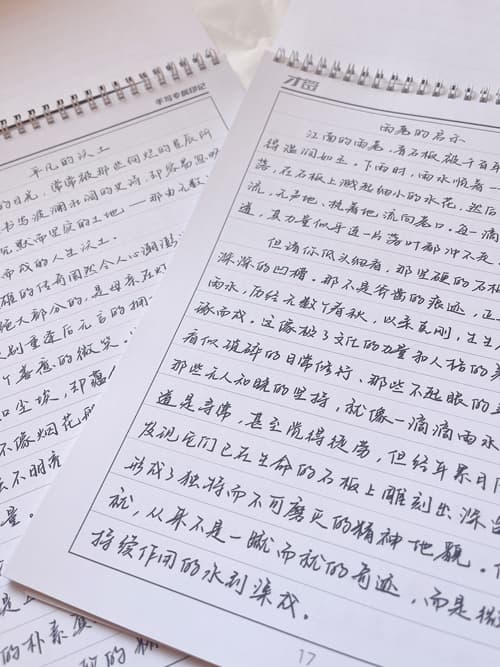 手写专属印记
平凡的沃土
的目光,常常被那些绚烂的星辰所
书与波澜壮阔的史诗,却容易忽略
沉默而坚实的土地——那由无数
而成的人生沃土。
雄的传奇固然令人心潮澎
绝大部分的,是母亲在灯
划重逢后无言的拥
个善意的微笑,
和尘埃,却蕴
不像烟花般
么不明亮
量。
的朴素
的
才踪
雨巷的启示
江南的雨巷,青石板被千百年
得温润如玉。下雨时,雨水顺着
落,在石板上溅起细小的水花,然后
流,无声地、执着地,流向巷口。每一滴
道,其力量似乎连一片落叶都冲不走。
但请你低头细看,那坚硬的石板
深深的凹槽。那不是斧凿的痕迹,正
雨水,历经无数个春秋,以柔克刚,生生
琢而成。这像极了文化的力量和人格的养
看似破碎的日常修行、那些不起眼的
那些无人知晓的坚持,就像一滴滴雨水
道是寻常,甚至觉得徒劳,但经年累月
发现它们已在生命的石板上雕刻出深
形成了独特而不可磨灭的精神地貌。
就,从来不是一蹴而就的奇迹,而是微
持续作用的水到渠成。
17